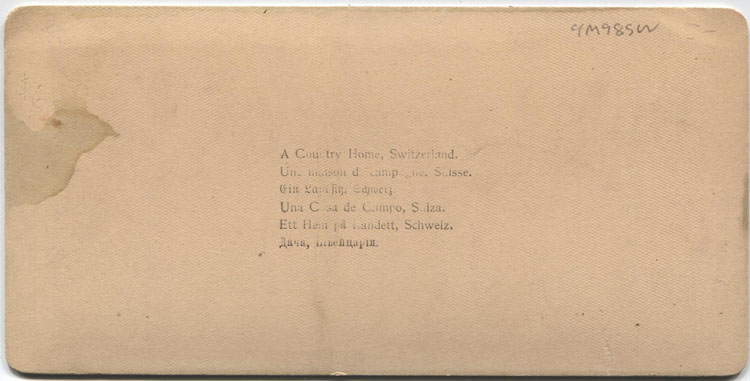 9M985W
A Country Home, Switzerland.
Une maison de campagne, Suisse.
Ein Landsitz, Schweiz.
Una Casa de Campo, Suiza.
Ett Hem på Landett, Schweiz.
Дача, Швейцарія.